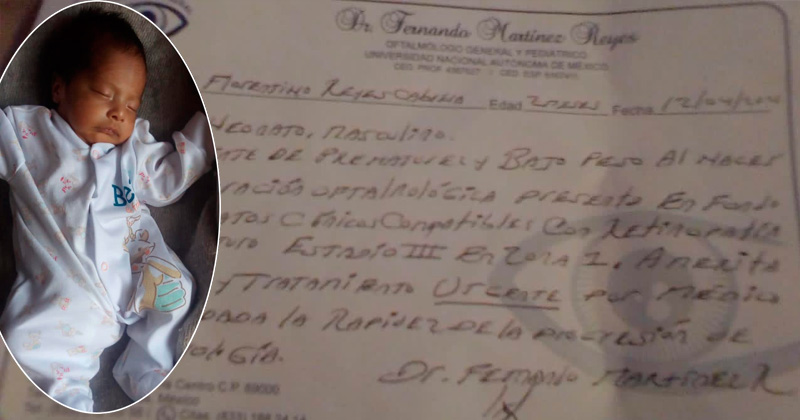 Dr. Fernando Martínez Reyes
OFTALMOLOGO GENERAL Y PEDIATRICO
UNIVERSIDAD NACIONAL AUTONOMA DE MEXICO
CED. PROF.
Florentino Reyes Edad Fecha 12/04/
NEONATO, MASCULINO.
DE PREMATUREZ y BAJO PESO AL NACER
OFTALMOLÓGICA PRESENTO EN FONDO
CLÍNICOS COMPATIBLES CON RETINOPATÍA
ESTADIO III EN ZONA 1. AMERITA
y TRATAMIENTO URGENTE POR MÉDICO
LA RAPIDEZ DE LA PROGRESIÓN DE
Dr. FERNANDO MARTINEZ R
Centro C.P. 89000
México
Citas. (833)